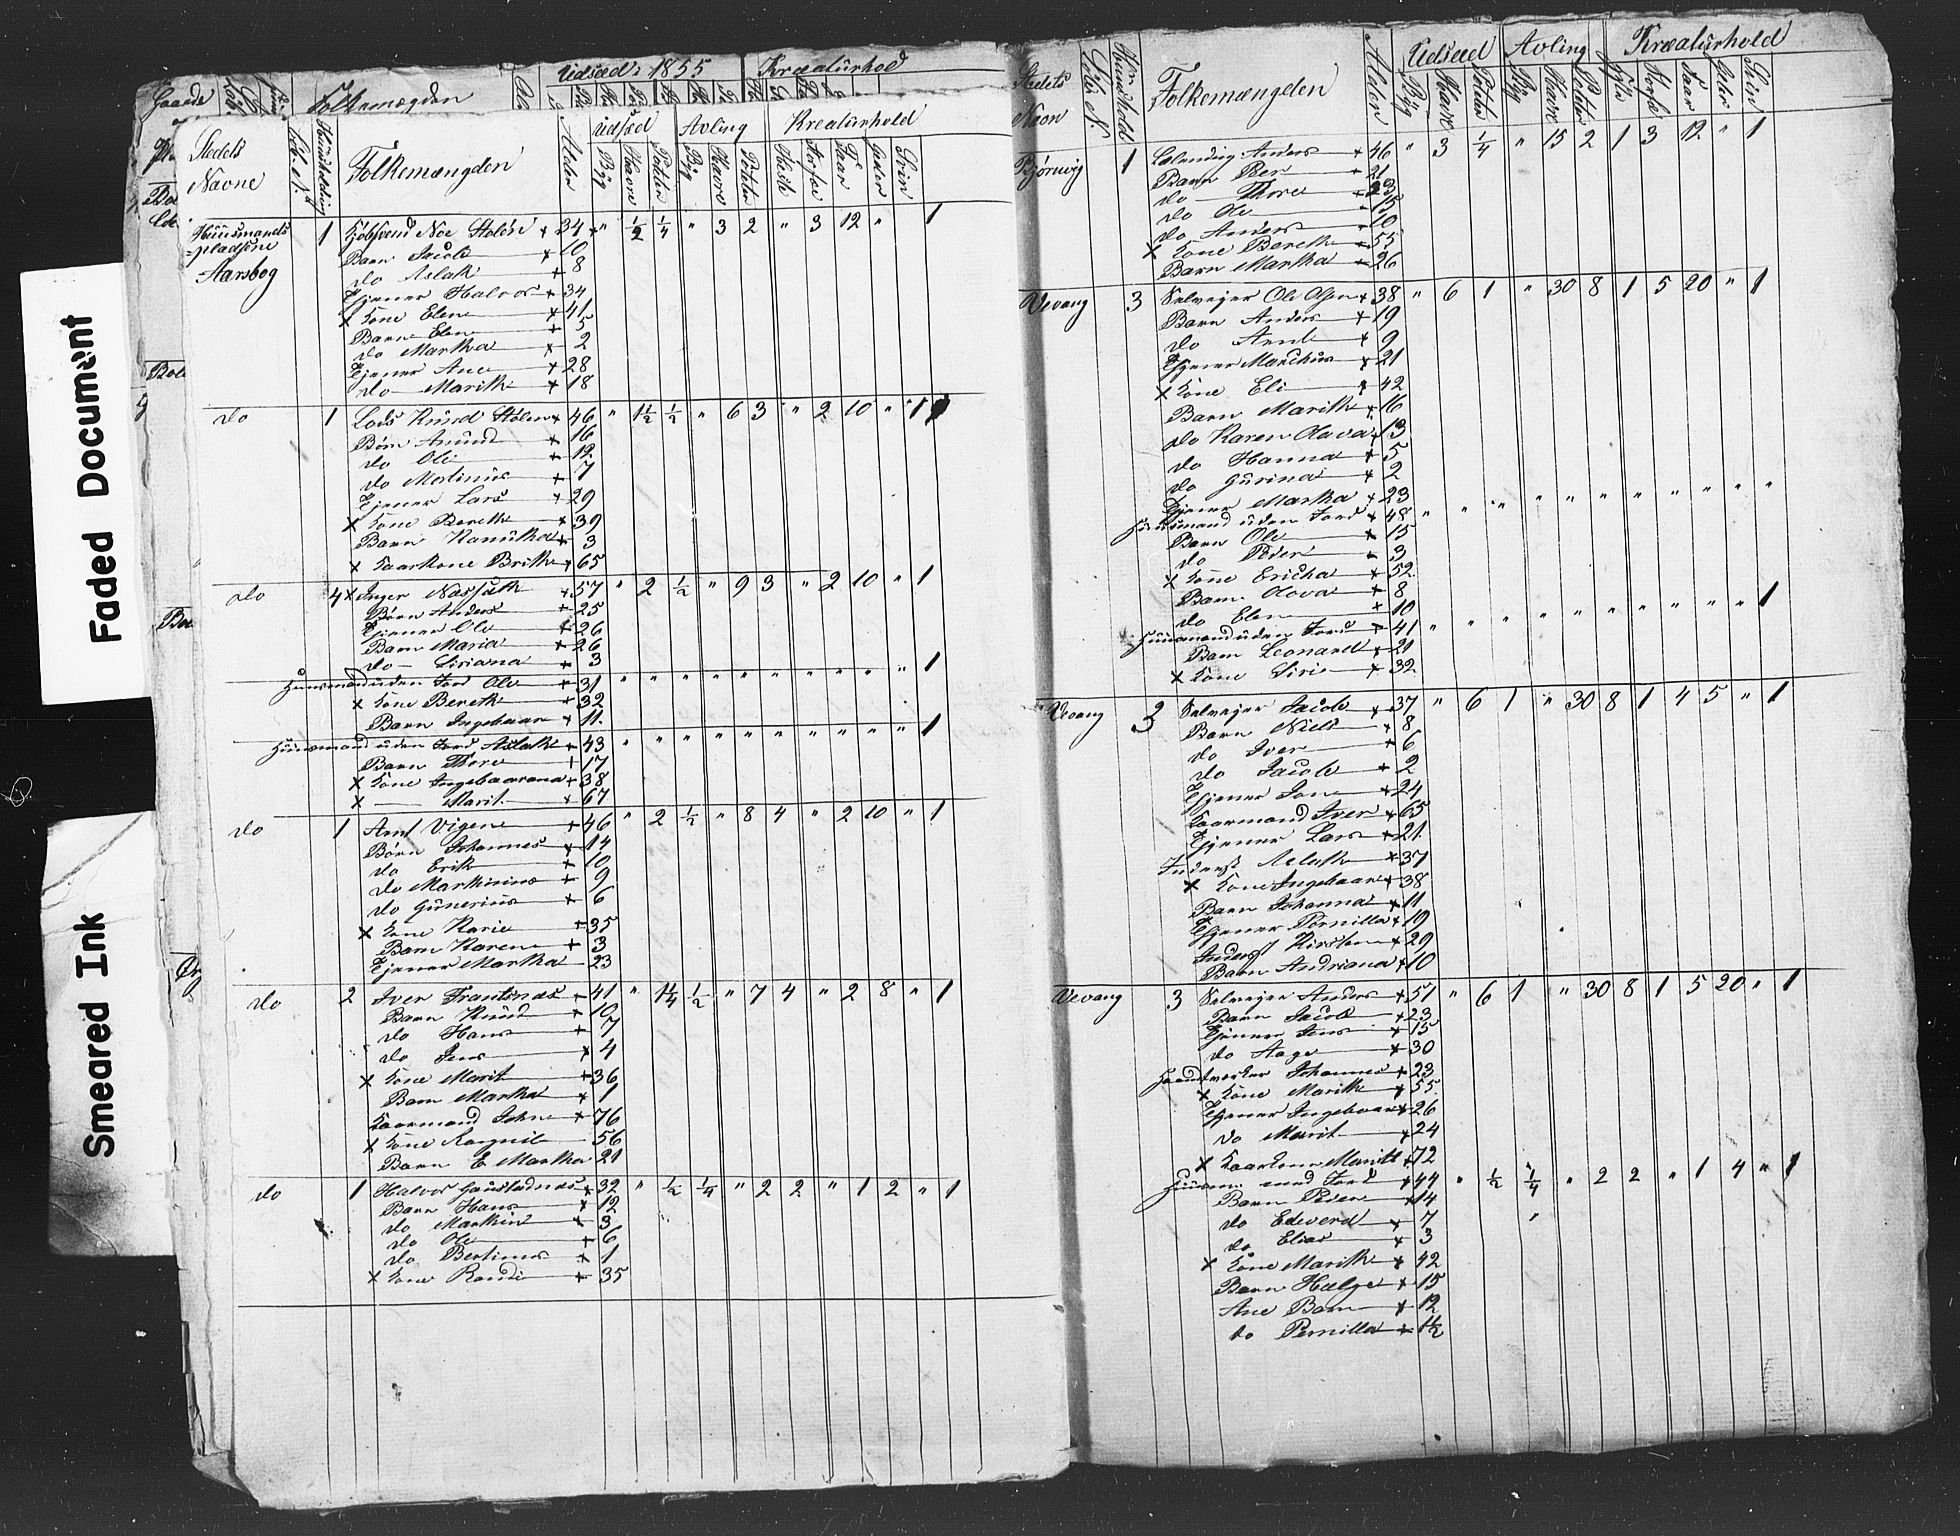 Faded Document
Smeared Ink
Gaarde Folkemægden Udsæd i 1855 Kreaturhold
Stedets Navne Lob. N. Huusholdning Folkemængden Alder Udsæd Avling Kreaturhold
Byg Havre Poteter Byg Havre Poteter Heste Storfæ Faar Geder Svin
Huusmands pladsene Aarsbog 1 Noe Stolen × 34 " ½ ¼ " 3 2 " 3 12 " 1
Barn Jacob × 10
do Aslak + 8
Tjener Halvor × 34
× Kone Elen × 41
Barn Elen + 5
do Martha × 2
Tjener Ane × 28
do Marith + 18
do 1 Lods Knud Stolen × 46 " 1½ ½ " 6 3 " 2 10 " 1
Børn Anund × 16
do Ole + 12
do Mortinus + 7
Tjener Lars × 29
× Kone Bereth × 39
Barn Kanutha + 3
× Kaarkone Brithe × 65
do 4 × Inger 57 " 2 ½ " 9 3 " 2 10 " 1
Børn Anders + 25
Tjener Ole + 26
Barn Maria + 26
do Siriana + 3
Huusmand uden Jord Ole + 31 " " " " " " " " " " 1
× Kone Bereth + 32
Barn Ingebaar + 11
Huusmand uden Jord Aslak + 43 " " " " " " " " " " 1
Barn Thore + 17
× Kone Ingebaarana + 38
× Marit × 67
do 1 Arnt Vigen + 46 " 2 ½ " 8 4 " 2 10 " 1
Børn Johannes × 14
do Erik + 10
do Marthinius + 9
do Gunerius × 6
× Kone Karie + 35
Barn Karen + 3
Tjener Martha 23
do 2 Iver Frantsnæs + 41 " 1¼ ½ " 7 4 " 2 8 " 1
Barn Knud + 10
do Hans + 7
do Jens × 4
× Kone Marit + 36
Barn Martha × 1
Kaarmand John × 76
× Kone Ragnil 56
Barn E Martha 21
do 1 Halvor Gaustadnæs × 32 " ½ ¼ " 2 2 " 1 2 " 1
Barn Hans × 12
do Marthin × 3
do Ole + 6
do Bertinus × 1
× Kone Randi + 35
Stedets Navn Lobe N. Huushold Folkemængden Alder Udsæd Avling Kreaturhold
Byg Havre Poteter Byg Havre Poteter Heste Storfæ Faar Geder Svin
Bjørnvig 1 Anders × 46 " 3 ¼ " 15 2 1 3 12 " 1
Barn Per + 21
do Thore + 23
do Ole - 15
do Anders + 10
× Kone Bereth + 55
Barn Martha + 26
Vevang 3 Selvejer Ole Olsen × 38 " 6 1 " 30 8 1 5 20 " 1
Barn Anders × 19
do Arnt × 9
Tjener Marchus × 21
× Kone Eli × 42
Barn Marith × 16
do Karen Olava 13
do Hanna + 5
do Gurina × 2
Tjener Martha × 23
Huusmand uden Jord × 48 " " " " " " " " " " "
Barn Ole × 15
do Peder + 3
× Kone Ericha × 52
Barn Olava × 8
do Elen + 10
Huusmand uden Jord + 41 " " " " " " " " " " 1
Barn Leonard × 21
× Kone Siri × 32
Vevang 3 Selvejer Jacob × 37 " 6 1 " 30 8 1 4 5 " 1
Barn Niels × 8
do Iver + 6
do Jacob + 2
Tjener Jon + 24
Kaarmand Iver × 65
Tjener Lars × 21
Inderst Aslak + 37
× Kone Ingebaar × 38
Barn Johanna × 11
Tjener Pernilla × 19
Inderst Kirsten × 29
Barn Andriana + 10
Vevang 3 Selvejer Anders + 51 " 6 1 " 30 8 1 5 20 " 1
Barn Jacob + 23
Tjener Jens × 15
do Aage × 30
Haandtverker Johannes × 23
× Kone Marith × 55
Tjener Ingebaar × 26
do Marit × 24
× Kaarkone Maritt 72
Huusm. med Jord × 44 " ½ ¼ " 2 2 " 1 4 " 1
Barn Peder + 14
do Edeverd × 7
do Elias × 3
× Kone Marith × 42
Barn Hælge × 15
Ane Barn × 12
do Pernilla × 1½